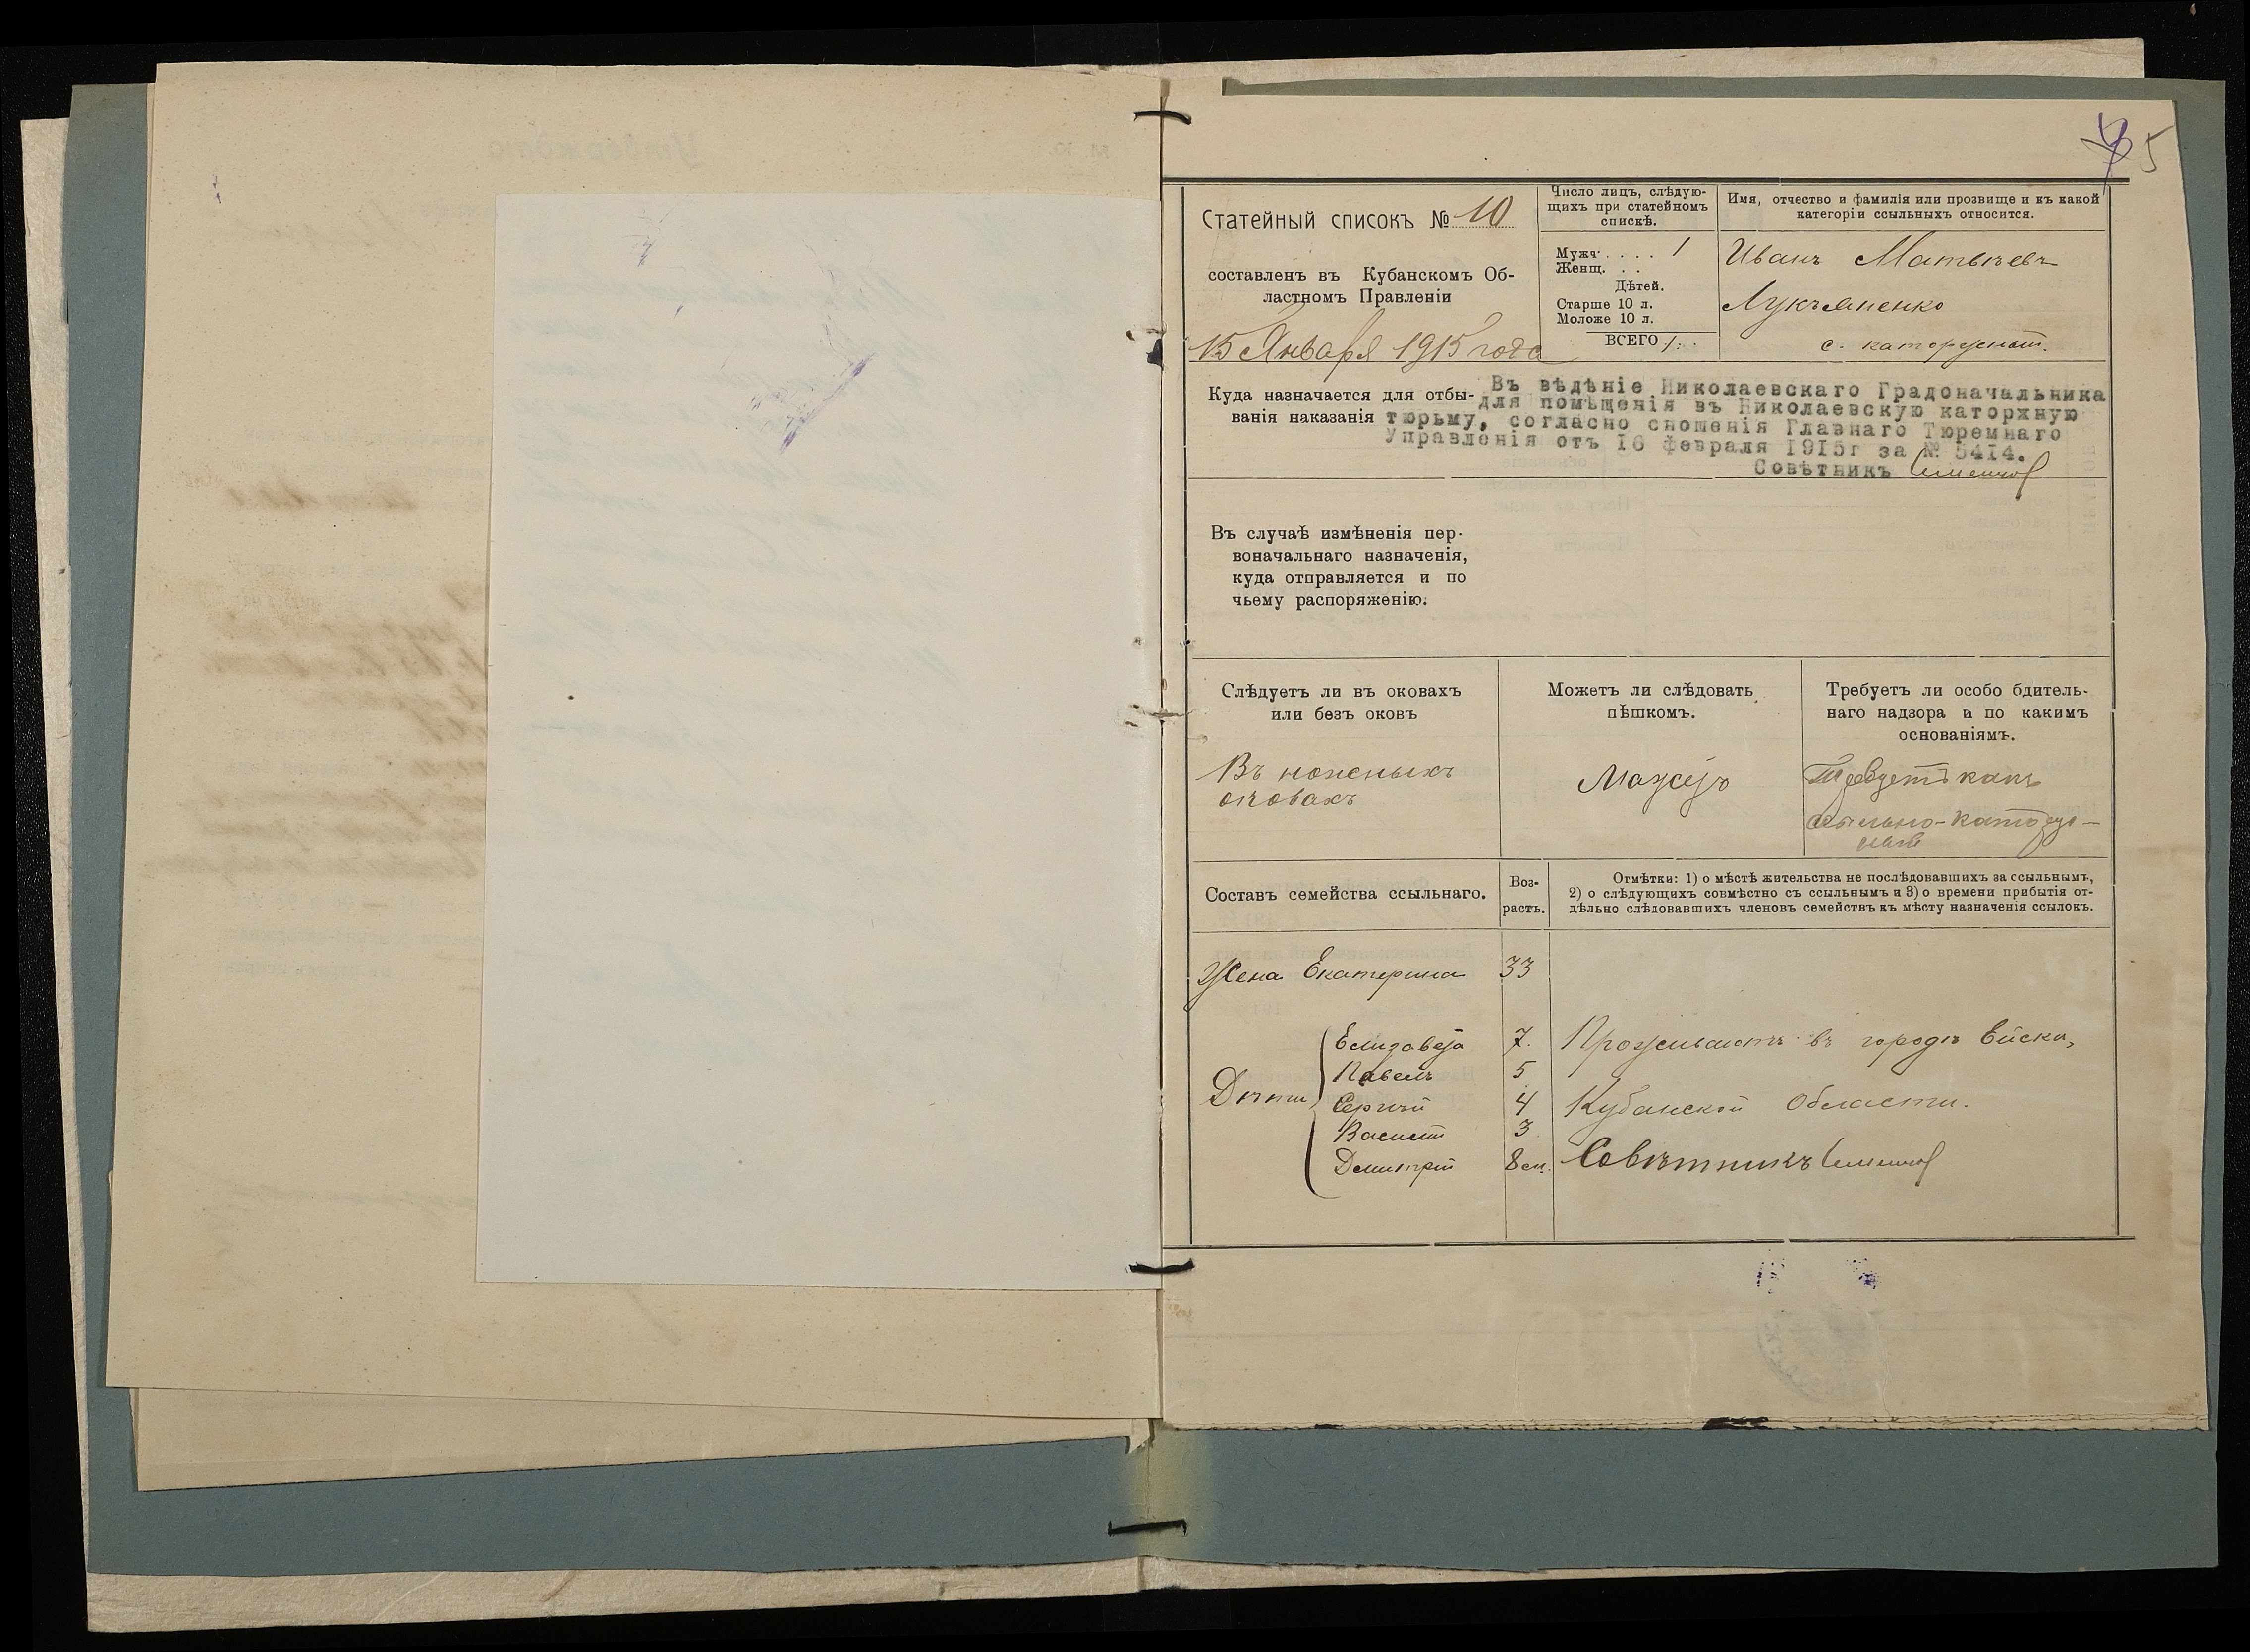 5
Статейный списокъ № 10
составленъ въ Кубанскомъ Об-
ластномъ Правленіи
15 Января 1915 года
Число лицъ, слѣдую-
щихъ при статейномъ
спискѣ.
Мужч. . . . 1
Женщ. . .
Дѣтей.
Старше 10 л.
Моложе 10 л.
ВСЕГО 1.
Имя, отчество и фамилія или прозвище и къ какой
категоріи ссыльныхъ относится.
Иванъ Матвѣевъ
Лукъяненко
с. каторжный.
Куда назначается для отбы-
ванія наказанія
Въ вѣдѣніе Николаевскаго Градоначальника
для помѣщенія въ Николаевскую каторжную
тюрьму, согласно сношенія Главнаго Тюремнаго
Управленія отъ 16 февраля 1915г за № 5414.
Совѣтникъ
Въ случаѣ измѣненія пер-
воначальнаго назначенія,
куда отправляется и по
чьему распоряженію.
Слѣдуетъ ли въ оковахъ
или безъ оковъ
Въ ножныхъ
оковахъ
Можетъ ли слѣдовать
пѣшкомъ.
Можетъ
Требуетъ ли особо бдитель-
наго надзора и по какимъ
основаніямъ.
Требуетъ какъ
ссыльно-каторж-
ный
Составъ семейства ссыльнаго.
Воз-
растъ.
Отмѣтки: 1) о мѣстѣ жительства не послѣдовавшихъ за ссыльнымъ,
2) о слѣдующихъ совмѣстно съ ссыльнымъ и 3) о времени прибытія от-
дѣльно слѣдовавшихъ членовъ семействъ къ мѣсту назначенія ссылокъ.
Жена Екатерина 33
Дѣти
Елизавета 7.
Павелъ 5
Сергѣй 4
Василій 3
Дмитрій 8 м.
Проживаютъ въ городѣ Ейскѣ,
Кубанской Области.
Совѣтникъ